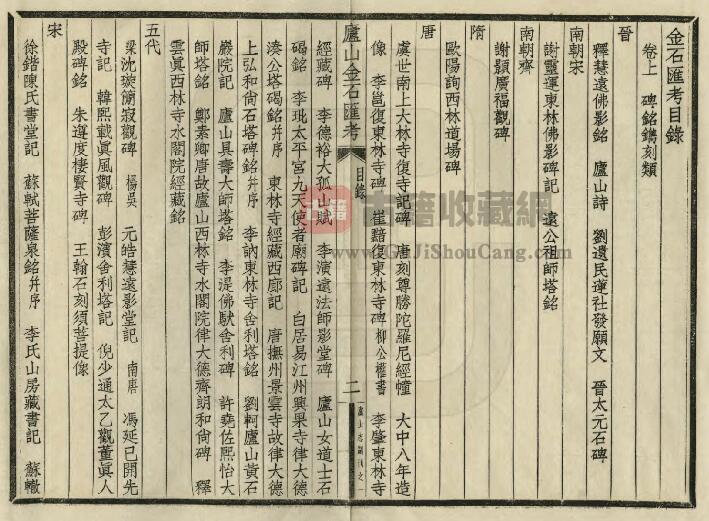 金石匯考目錄
卷上　碑銘鐫刻類
晉
釋慧遠佛影銘　廬山詩　劉遺民蓮社發願文　晉太元石碑
南朝宋
謝靈運東林佛影碑記　遠公祖師塔銘
南朝齊
謝顥廣福觀碑
隋
歐陽詢西林道場碑
唐
虞世南上大林寺復寺記碑　唐刻尊勝陀羅尼經幢　大中八年造
像　李邕復東林寺碑　崔黯復東林寺碑柳公權書　李肇東林寺
廬山金石匯考　目錄　二　廬山志副刊之一
經藏碑　李德裕大孤山賦　李演遠法師影堂碑　廬山女道士石
碣銘　李玭太平宮九天使者廟碑記　白居易江州興果寺律大德
湊公塔碣銘幷序　東林寺經藏西廊記　唐撫州景雲寺故律大德
上弘和尙石塔碑銘幷序　李訥東林寺舍利塔銘　劉軻廬山黃石
巖院記　廬山具壽大師塔銘　李湜佛馱舍利碑　許堯佐熙怡大
師塔銘　鄭素卿唐故廬山西林寺水閣院律大德齊朗和尙碑　釋
雲眞西林寺水閣院經藏銘
五代
梁沈璇簡寂觀碑　楊吳　元皓慧遠影堂記　南唐　馮延已開先
寺記　韓熙載眞風觀碑　彭濱舍利塔記　倪少通太乙觀董眞人
殿碑銘　朱遵度棲賢寺碑　王翰石刻須菩提像
宋
徐鍇陳氏書堂記　蘇軾菩薩泉銘幷序　李氏山房藏書記　蘇轍
古籍收藏網
www.GuJiShouCang.com
古籍